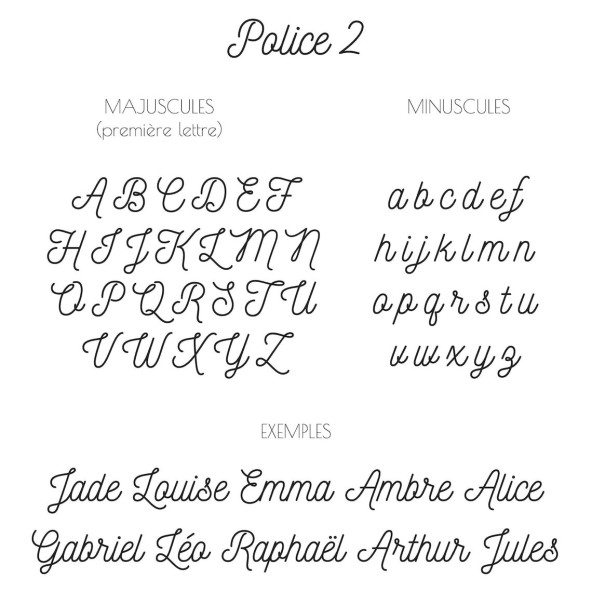 Police 2
MAJUSCULES
(première lettre)
MINUSCULES
ABCDEF
HIJKLMN
OPQRSTU
VWXYZ
abcdef
hijklmn
opqrstu
vwxyz
EXEMPLES
Jade Louise Emma Ambre Alice
Gabriel Léo Raphaël Arthur Jules